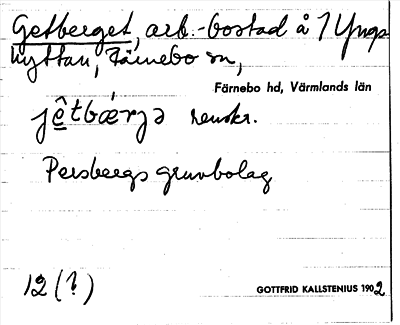 Getberget, arb.-bostad å 1 Yngs
hyttan, Färnebo sn,
Färnebo hd, Värmlands län
jêtbǽrjə renskr.
Persbergs gruvbolag
12 (?)
GOTTFRID KALLSTENIUS 1902